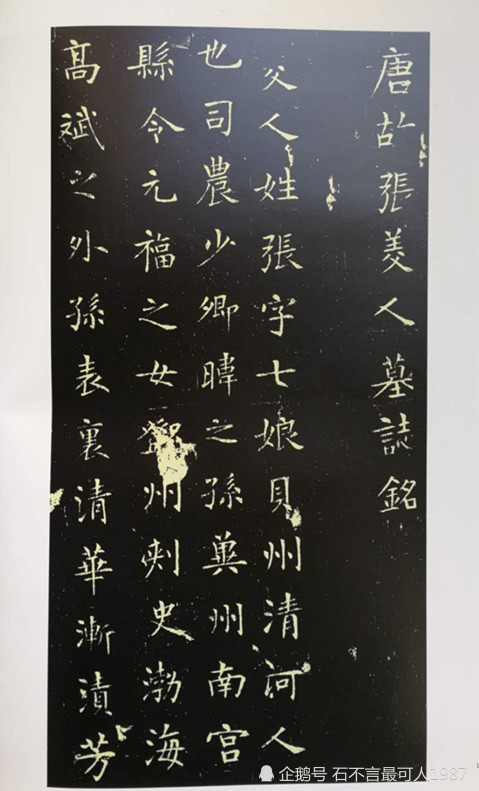 唐故張美人墓誌銘
父人姓張字七娘貝州清河人
也司農少卿暐之孫冀州南宮
縣令元福之女鄧州刾史渤海
高斌之外孫表裏清華漸漬芳
企鹅号 石不言最可人1987